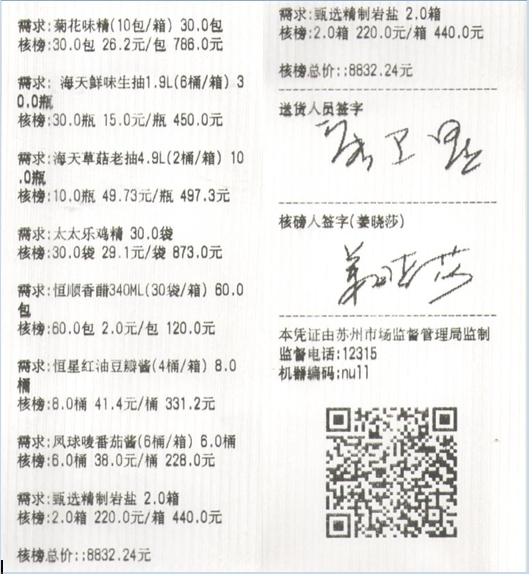 需求:菊花味精(10包/箱) 30.0包
核榜:30.0包 26.2元/包 786.0元
需求: 海天鲜味生抽1.9L(6桶/箱) 3
0.0瓶
核榜:30.0瓶 15.0元/瓶 450.0元
需求:海天草菇老抽4.9L(2桶/箱) 10
.0瓶
核榜:10.0瓶 49.73元/瓶 497.3元
需求:太太乐鸡精 30.0袋
核榜:30.0袋 29.1元/袋 873.0元
需求:恒顺香醋340ML(30袋/箱) 60.0
包
核榜:60.0包 2.0元/包 120.0元
需求:恒星红油豆瓣酱(4桶/箱) 8.0
桶
核榜:8.0桶 41.4元/桶 331.2元
需求:凤球唛番茄酱(6桶/箱) 6.0桶
核榜:6.0桶 38.0元/桶 228.0元
需求:甄选精制岩盐 2.0箱
核榜:2.0箱 220.0元/箱 440.0元
核榜总价::8832.24元
需求:甄选精制岩盐 2.0箱
核榜:2.0箱 220.0元/箱 440.0元
核榜总价::8832.24元
送货人员签字
核磅人签字(姜晓莎)
姜晓莎
本凭证由苏州市场监督管理局监制
监督电话:12315
机器编码:null